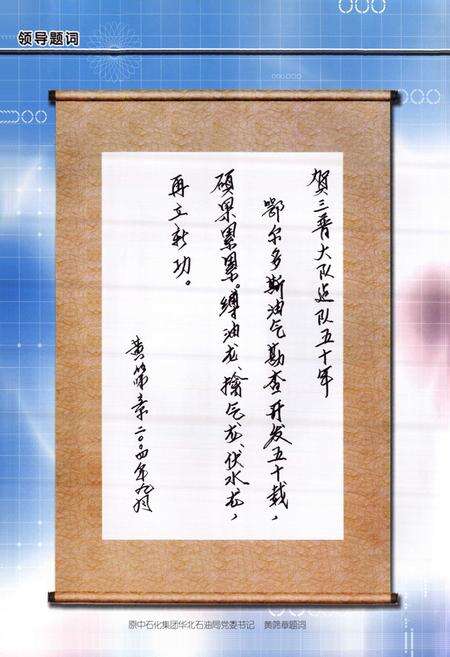 领导题词
贺三普大队建队五十年
鄂尔多斯油气勘查开发五十载，
硕果累累。缚油龙、擒气龙、伏水龙，
再立新功。
黄第章二〇〇四年九月
原中石化集团华北石油局党委书记 黄筛章题词